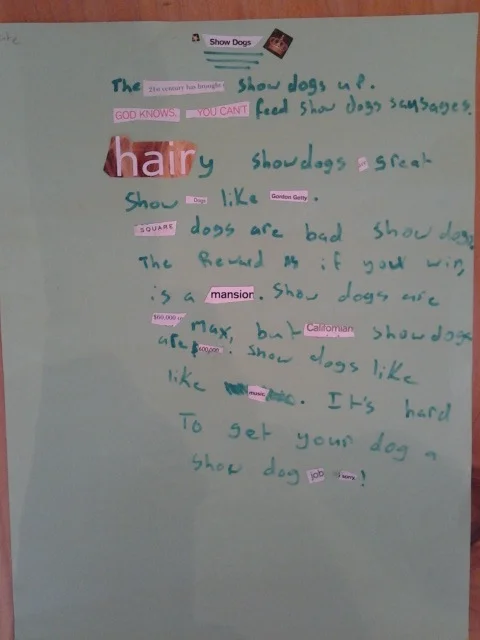 Show Dogs
The 21st century has brought show dogs up.
GOD KNOWS, YOU CAN'T feed show dogs sausages.
hairy showdogs = great
Show Dogs like Gordon Getty.
SQUARE dogs are bad show dogs
The Reward is if your win,
is a mansion. Show dogs are
$60,000 Max, but Californian showdogs
are 600,000. Show dogs like
like music. It's hard
To get your dog a
show dog job sorry!